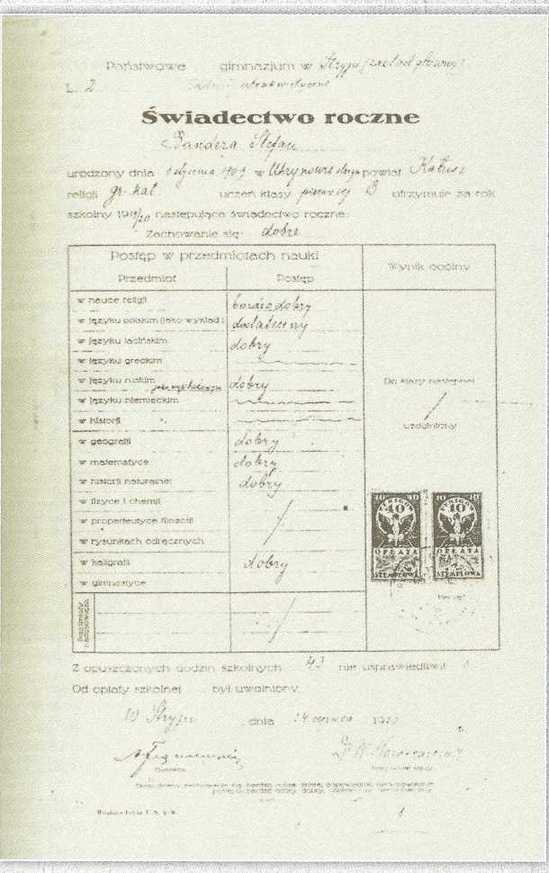 Państwowe gimnazjum w Stryju (zakład główny)
L. 2
Świadectwo roczne
Bandera Stefan
urodzony dnia 1 stycznia 1909 w Uhrynowie starym powiat Kałusz
religji gr. kat uczeń klasy pierwszej B otrzymuje za rok
szkolny 1919/20 następujące świadectwo roczne:
Zachowanie się: dobre
Postęp w przedmiotach nauki
Wynik ogólny
Przedmiot Postęp
w nauce religji bardzo dobry
w języku polskim (jako wykład.) dostateczny
w języku łacińskim dobry
w języku greckim
w języku ruskim dobry
w języku niemieckim
w historji
w geografji dobry
w matematyce dobry
w historji naturalnej dobry
w fizyce i chemji
w propedeutyce filozofji
w rysunkach odręcznych
w kaligrafji dobry
w gimnastyce
Do klasy następnej
uzdolniony
10 10 10 10
40 40
OPŁATA OPŁATA
STEMPLOWA STEMPLOWA
Z opuszczonych godzin szkolnych 43 nie usprawiedliwił
Od opłaty szkolnej był uwolniony.
W Stryju, dnia 14 czerwca
1